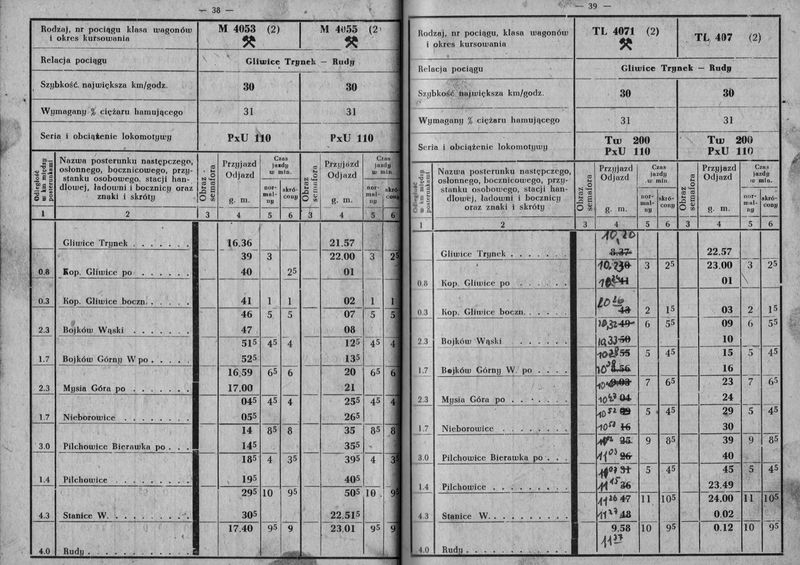 — 38 —
Rodzaj, nr pociągu klasa wagonów i okres kursowania
M 4053 (2)
M 4055 (2)
Relacja pociągu
Gliwice Trynek — Rudy
Szybkość największa km/godz.
30 30
Wymagany % ciężaru hamującego
31 31
Seria i obciążenie lokomotywy
PxU 110 PxU 110
Odległość w km między posterunkami
Nazwa posterunku następczego, osłonnego, bocznicowego, przystanku osobowego, stacji handlowej, ładowni i bocznicy oraz znaki i skróty
Obraz semafora
Przyjazd Odjazd g. m.
Czas jazdy w min.
normalny
skrócony
Obraz semafora
Przyjazd Odjazd g. m.
Czas jazdy w min.
normalny
skrócony
1 2 3 4 5 6 3 4 5 6
Gliwice Trynek 16.36 21.57
39 3 22.00 3 25
0.8 Kop. Gliwice po 40 25 01
0.3 Kop. Gliwice boczn. 41 1 1 02 1 1
46 5 5 07 5 5
2.3 Bojków Wąski 47 08
515 45 4 125 45 4
1.7 Bojków Górny W po 525 135
16.59 65 6 20 65 6
2.3 Mysia Góra po 17.00 21
045 45 4 255 45 4
1.7 Nieborowice 055 265
14 85 8 35 85 8
3.0 Pilchowice Bierawka po 145 355
185 4 35 395 4 35
1.4 Pilchowice 195 405
295 10 95 505 10 95
4.3 Stanice W. 305 22.515
17.40 95 9 23.01 95 9
4.0 Rudy
— 39 —
Rodzaj, nr pociągu, klasa wagonów i okres kursowania
TL 4071 (2)
TL 407 (2)
Relacja pociągu
Gliwice Trynek — Rudy
Szybkość największa km/godz.
30 30
Wymagany % ciężaru hamującego
31 31
Seria i obciążenie lokomotywy
Tw 200 Tw 200
PxU 110 PxU 110
Odległość w km między posterunkami
Nazwa posterunku następczego, osłonnego, bocznicowego, przystanku osobowego, stacji handlowej, ładowni i bocznicy oraz znaki i skróty
Obraz semafora
Przyjazd Odjazd g. m.
Czas jazdy w min.
normalny
skrócony
Obraz semafora
Przyjazd Odjazd g. m.
Czas jazdy w min.
normalny
skrócony
1 2 3 4 5 6 3 4 5 6
10,20
Gliwice Trynek 8.37 22.57
3 25 23.00 3 25
0.8 Kop. Gliwice po 41 01
0.3 Kop. Gliwice boczn. 43 2 15 03 2 15
49 6 55 09 6 55
2.3 Bojków Wąski 10,33 50 10
55 5 45 15 5 45
1.7 Bojków Górny W. po 8.56 16
7 65 23 7 65
2.3 Mysia Góra po 04 24
1052 5 45 29 5 45
1.7 Nieborowice 1053 16 30
25 9 85 39 9 85
3.0 Pilchowice Bierawka po 1103 26 40
31 5 45 45 5 45
1.4 Pilchowice 36 23.49
1126 47 11 105 24.00 11 105
4.3 Stanice W. 1127 48 0.02
9.58 10 95 0.12 10 95
1137
4.0 Rudy